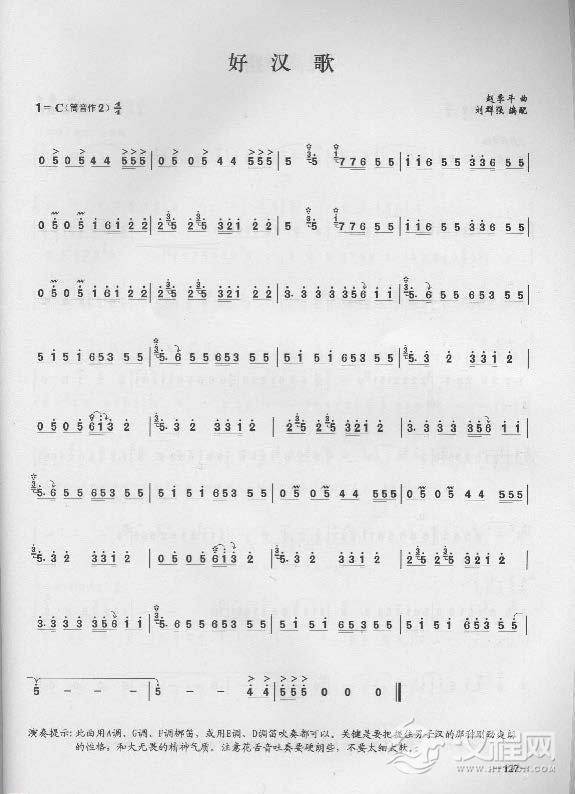 好汉歌
1=C(筒音作2) 4/4
赵季平 曲
刘群强 编配
0 5 0 5 4 4 5 5 5 | 5 0 5 0 5 4 4 5 5 5 | 5 5 7 7 6 5 5 | 1 1 6 5 5 3 3 6 5 5 |
0 5 0 5 1 6 1 2 2 | 2 5 2 5 3 2 1 2 2 | 5 5 7 7 6 5 5 | 1 1 6 5 5 3 3 6 5 5 |
0 5 0 5 1 6 1 2 2 | 2 5 2 5 3 2 1 2 2 | 3. 3 3 3 3 5 6 1 1 | 5. 6 5 5 6 5 3 5 5 |
5 1 5 1 6 5 3 5 5 | 5. 6 5 5 6 5 3 5 5 | 5 1 5 1 6 5 3 5 5 | 5. 3 2 3 3 1 2 |
0 5 0 5 6 1 3 2 | 5. 3 2 3 3 1 2 | 2 5 2 5 3 2 1 2 2 | 3. 3 3 3 3 5 6 1 1 |
5. 6 5 5 6 5 3 5 5 | 5 1 5 1 6 5 3 5 5 | 0 5 0 5 4 4 5 5 5 | 0 5 0 5 4 4 5 5 5 |
5. 3 2 3 3 1 2 | 0 5 0 5 6 1 3 2 | 5. 3 2 3 3 1 2 | 2 5 2 5 3 2 1 2 2 |
3. 3 3 3 3 5 6 1 1 | 5. 6 5 5 6 5 3 5 5 | 5 1 5 1 6 5 3 5 5 | 5 1 5 1 6 5 3 5 5 |
5 - - - | 5 - - 4 4 | 5 5 5 4 4 5 5 5 | 5 0 0 0 ‖
演奏提示:此曲用A调、G调、F调梆笛,或用E调、D调笛吹奏都可以。关键是要把握住男子汉的
的性格,和大无畏的精神气质。注意花舌音吐奏要硬朗些,不要太细太软。
·127·
汉程网